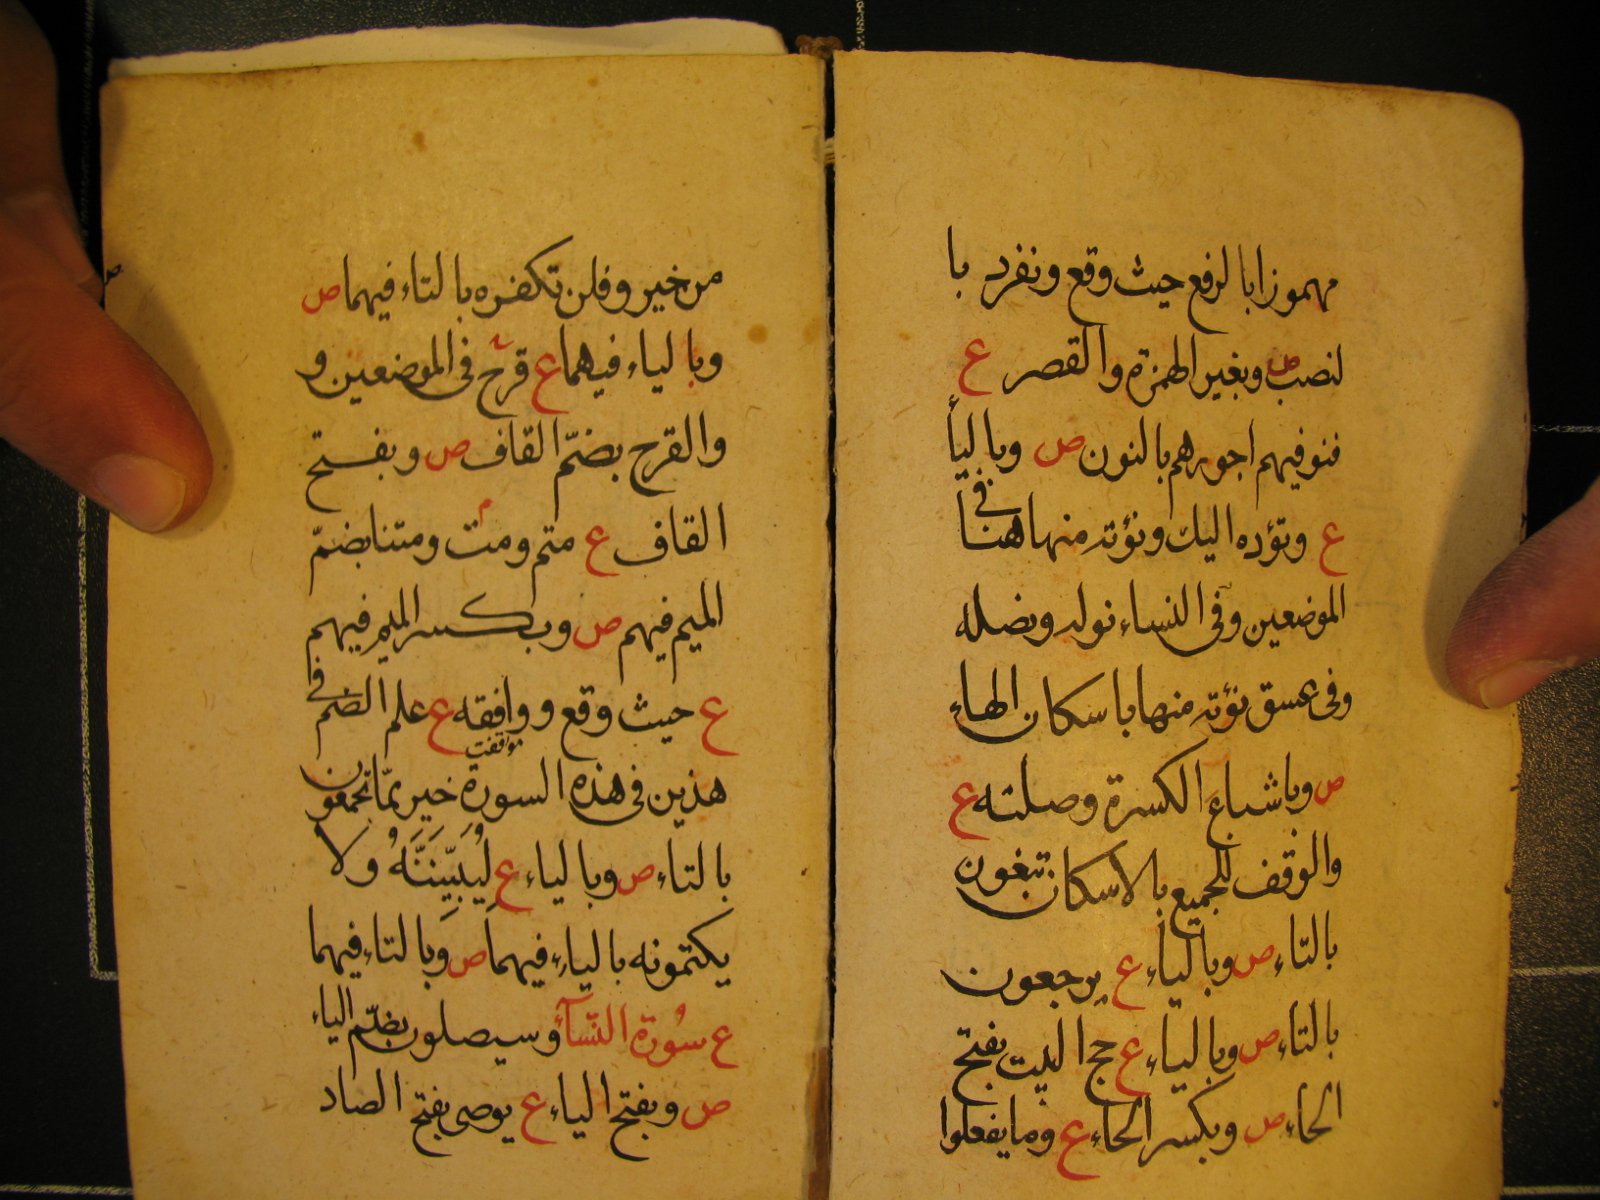 مهموزا بالرفع حيث وقع ونفرد با
لنصب ص وبغير الهمزة والقصر ع
فنوفيهم اجورهم بالنون ص وباليا
ع ويؤده اليك ونؤته منها هنا في
الموضعين وفي النساء نوله ونصله
وفي عسق نؤته منها باسكان الهاء
ص وباشباع الكسرة وصلته ع
والوقف للجميع بالاسكان تبغون
بالتاء ص وبالياء ع يرجعون
بالتاء ص وبالياء ع حج البيت بفتح
الحاء ص وبكسر الحاء ع وما يفعلوا
من خير وفلن تكفره بالتاء فيهما ص
وبالياء فيهما ع قرح في الموضعين و
والقرح بضمّ القاف ص وبفتح
القاف ع متم ومت ومتنا بضمّ
الميم فيهم ص وبكسر الميم فيهم
ع حيث وقع ووافقه ع علم الضم في
موافقت
هذين في هذه السورة خير ممّا تجمعون
بالتاء ص وبالياء ع لَيُبَيِّنَنَّهُ ولا
يكتمونه بالياء فيهما ص وبالتاء فيهما
ع سُورة النّسآء وسيصلون بضمّ الياء
ص وبفتح الياء ع يوصى بفتح الصاد